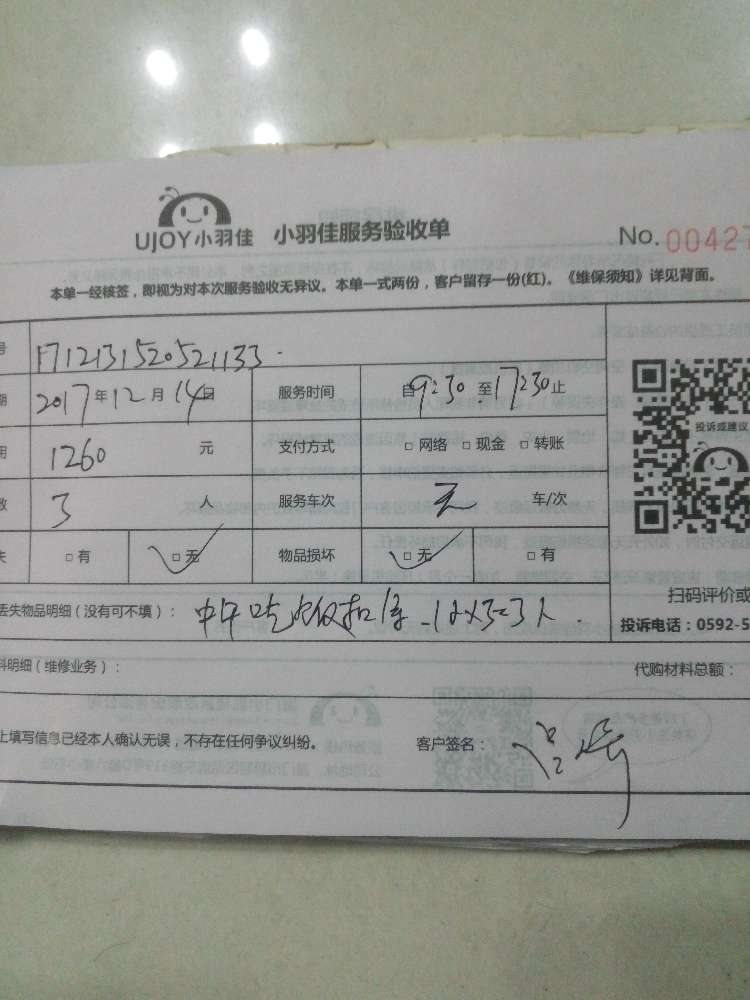 UJOY小羽佳 小羽佳服务验收单 No. 00427
本单一经核签，即视为对本次服务验收无异议。本单一式两份，客户留存一份(红)。《维保须知》详见背面。
号 F1712131520521133
期 2017年12月14日 服务时间 自9:30至17:30止
用 1260 元 支付方式 □网络 □现金 □转账
投诉或建议
数 3 人 服务车次 无 车/次
失 □有 □无 物品损坏 □无 □有
扫码评价或
丢失物品明细（没有可不填）： 中午吃饭扣
投诉电话：0592-5
料明细（维修业务）： 代购材料总额：
上填写信息已经本人确认无误，不存在任何争议纠纷。 客户签名：